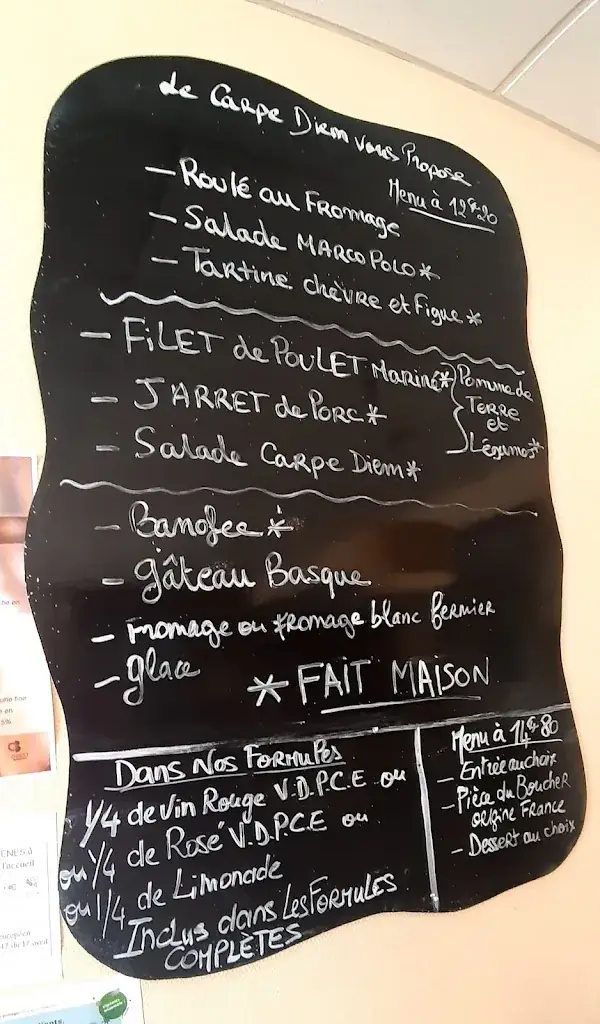 Le Carpe Diem vous Propose
Menu à 12€20
- Roulé au Fromage
- Salade MARCO POLO*
- Tartine chèvre et Figue*
- FiLET de POULET Mariné*
- JARRET de PORC*
- Salade Carpe Diem*
Pomme de
Terre
et
Légumes*
- Banofee*
- gâteau Basque
- Fromage ou fromage blanc fermier
- glace
* FAIT MAISON
Dans Nos FORMULES
1/4 de vin Rouge V.D.P.C.E ou
ou 1/4 de Rosé V.D.P.C.E ou
ou 1/4 de Limonade
Inclus dans Les FORMULES
COMPLÈTES
Menu à 14€80
- Entrée au choix
- Pièce du Boucher
origine France
- Dessert au choix